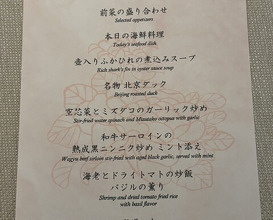 前菜の盛り合わせ
Selected appetizers
本日の海鮮料理
Today's seafood dish
壺入りふかひれの煮込みスープ
Rich shark's fin in oyster sauce soup
名物 北京ダック
Beijing roasted duck
空芯菜とミズダコのガーリック炒め
Stir-fried water spinach and Mizudako octopus with garlic
和牛サーロインの
熟成黒ニンニク炒め ミント添え
Wagyu beef sirloin stir-fried with aged black garlic, served with mint
海老とドライトマトの炒飯
バジルの薫り
Shrimp and dried tomato fried rice
with basil flavor